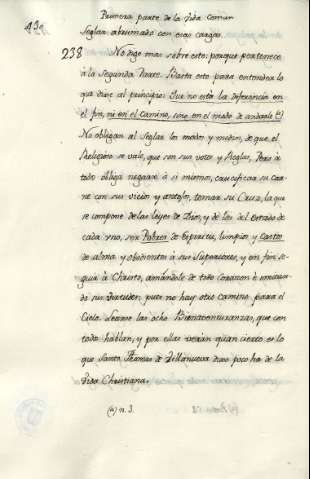 430
Primera parte de la vida comun
Seglar abrumado con esas cargas.
238 No digo mas sobre esto: porque pertenece
à la segunda Parte. Basta esto para entender lo
que dixe al principio: Que no està la diferencia en
el fin, ni en el camino, sino en el modo de andarle (a)
No obligan al Seglar los modos y medios, de que el
Religioso se vale, que son sus votos y Reglas, Pero à
todo obliga negarse à si mismo, crucificar su Car-
ne con sus vicios y antojos, tomar su Cruz, la que
se compone de las leyes de Dios, y de los del Estado de
cada uno, ser Pobres de Espiritu, limpios y Castos
de alma y obedientes à sus Superiores, y en fin se-
guir à Christo, amandole de todo corazon è
sus virtudes pues no hay otro camino para el
Cielo. Leanse las ocho Bienaventuranzas, que con
todo hablan, y por ellas veràn quan cierto es lo
que Santo Thomas de Villanueva dixo poco ha de la
Christiana.
(a) n. 3.